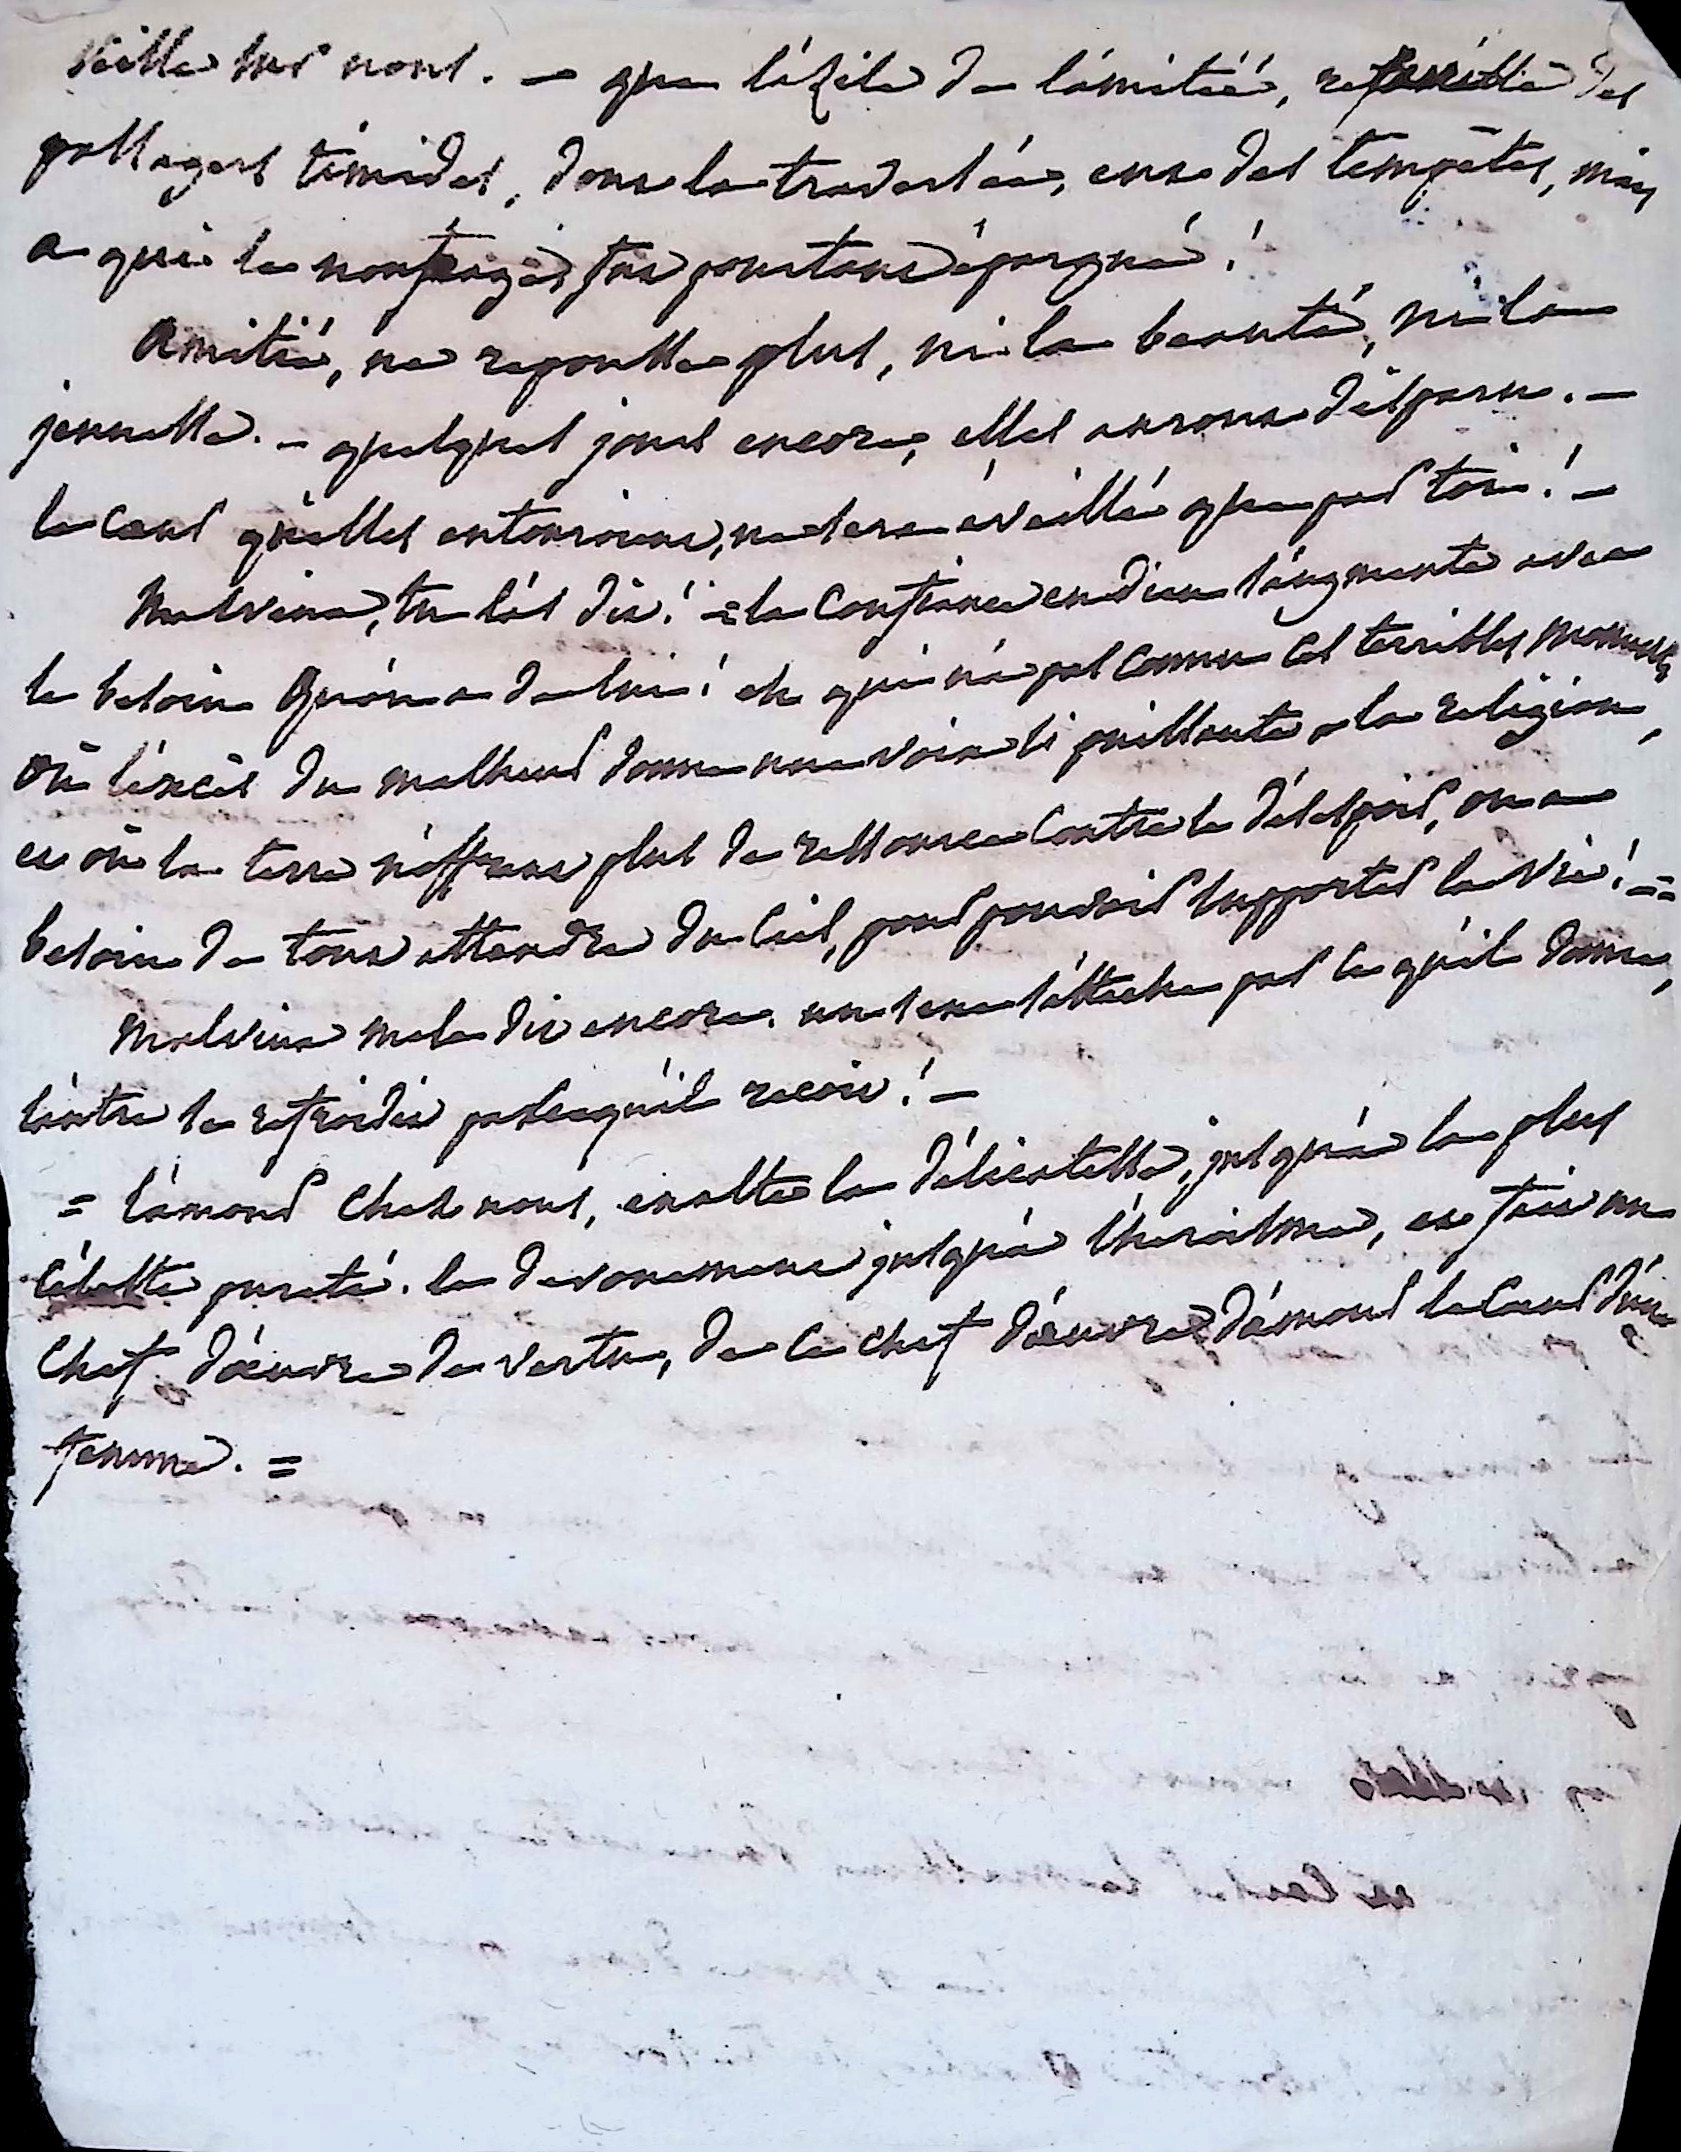 veille sur nous. — que l'azile de l'amitiée, des
passagers timides, dont la traversée, eut des tempêtes, mais
a qui le naufrage, fut pourtant épargné !
Amitié, ne repousse plus, ni la beauté, ni la
jeunesse. — quelques jours encore, elles auront disparu. —
le cœur qu'elles entouroient, ne sera éveillé que par toi ! —
Malvina, tu l'as dis ! = la confiance en dieu s'augmente avec
le besoin qu'on a de lui ! eh qui n'a pas connu ces terribles moments
où l'excès du malheur donne une voix si puissante a la religion,
et où la terre n'offrant plus de ressource contre le désespoir, on a
besoin de tout attendre du ciel, pour pouvoir supporter la vie ! =
Malvina me le dit encore. un sexe s'attache par ce qu'il donne,
l'autre se refroidit par ce qu'il recoit ! —
= l'amour chez nous, exalte la délicatesse, jusqu'a la plus
céleste pureté. le devouement jusqu'a l'heroisme, et fait un
chef d'œuvre de vertu, de ce chef d'œuvre d'amour le cœur d'une
femme. =